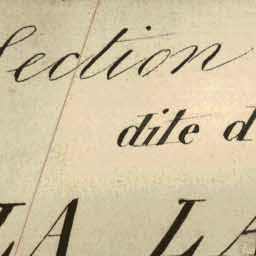 Section
dite d
LA LA